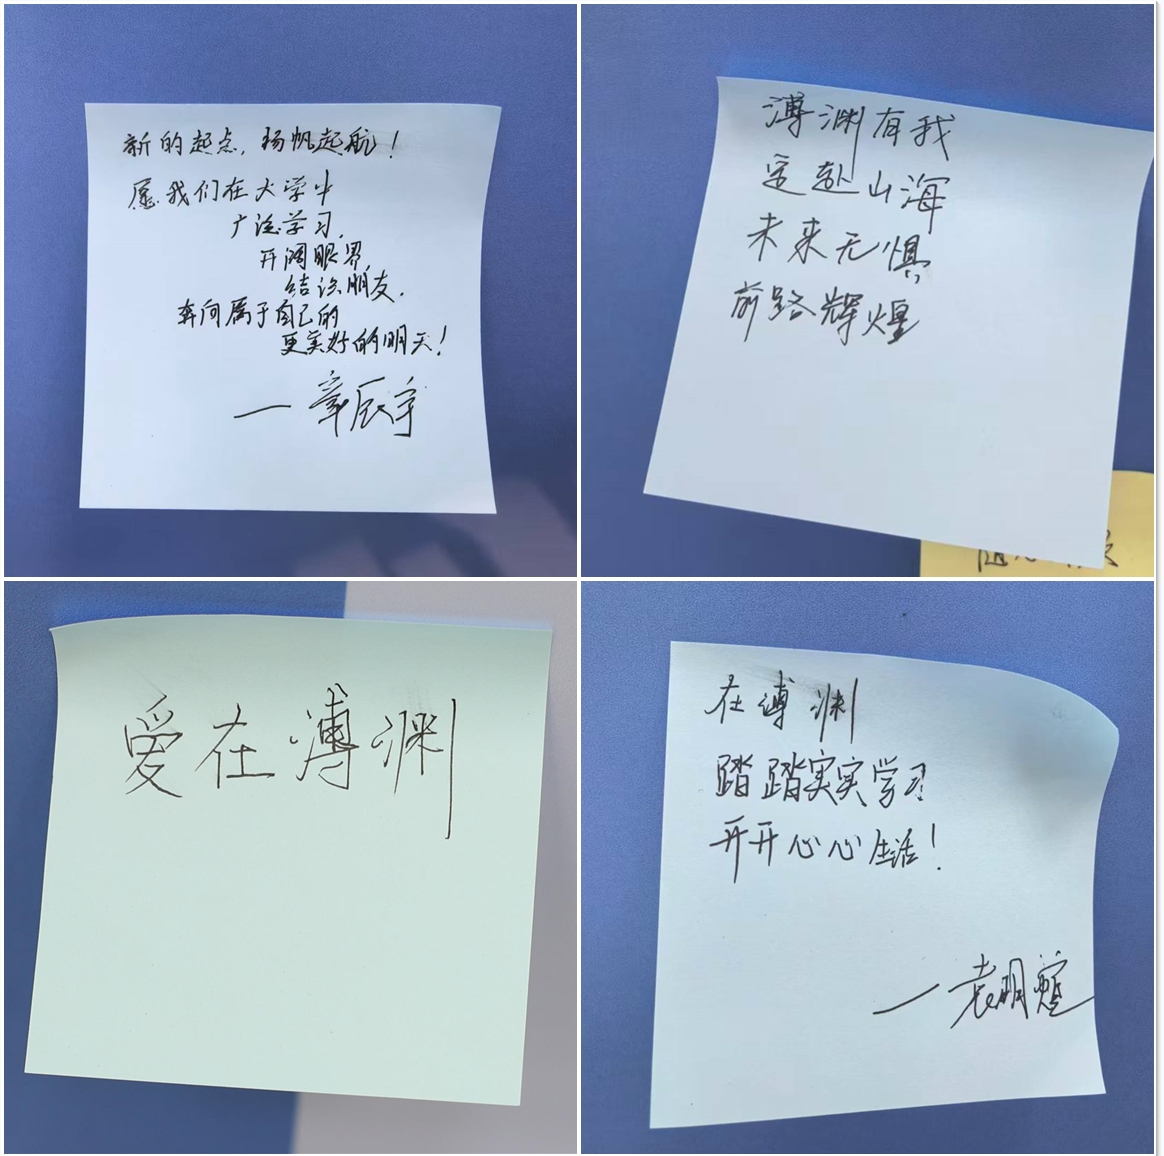 新的起点，扬帆起航！
愿我们在大学中
广泛学习，
开阔眼界，
结识朋友，
奔向属于自己的
更美好的明天！
——章辰宇
溥渊有我
定赴山海
未来无惧
前路辉煌
爱在溥渊
在溥渊
踏踏实实学习
开开心心生活！
——袁明